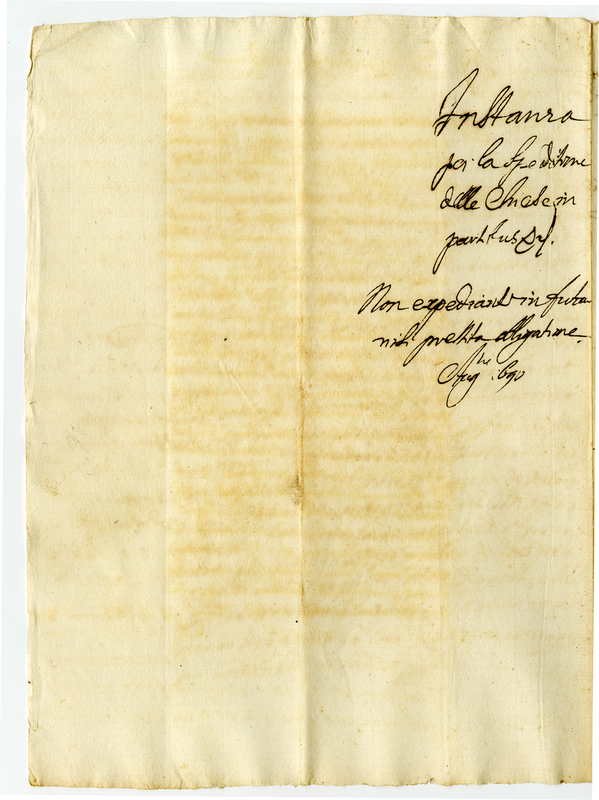 Instanza
per la speditione
delle Chiese in
partibus
Non expediantur in futurum
nisi prestita obligatione.
Aug. 690